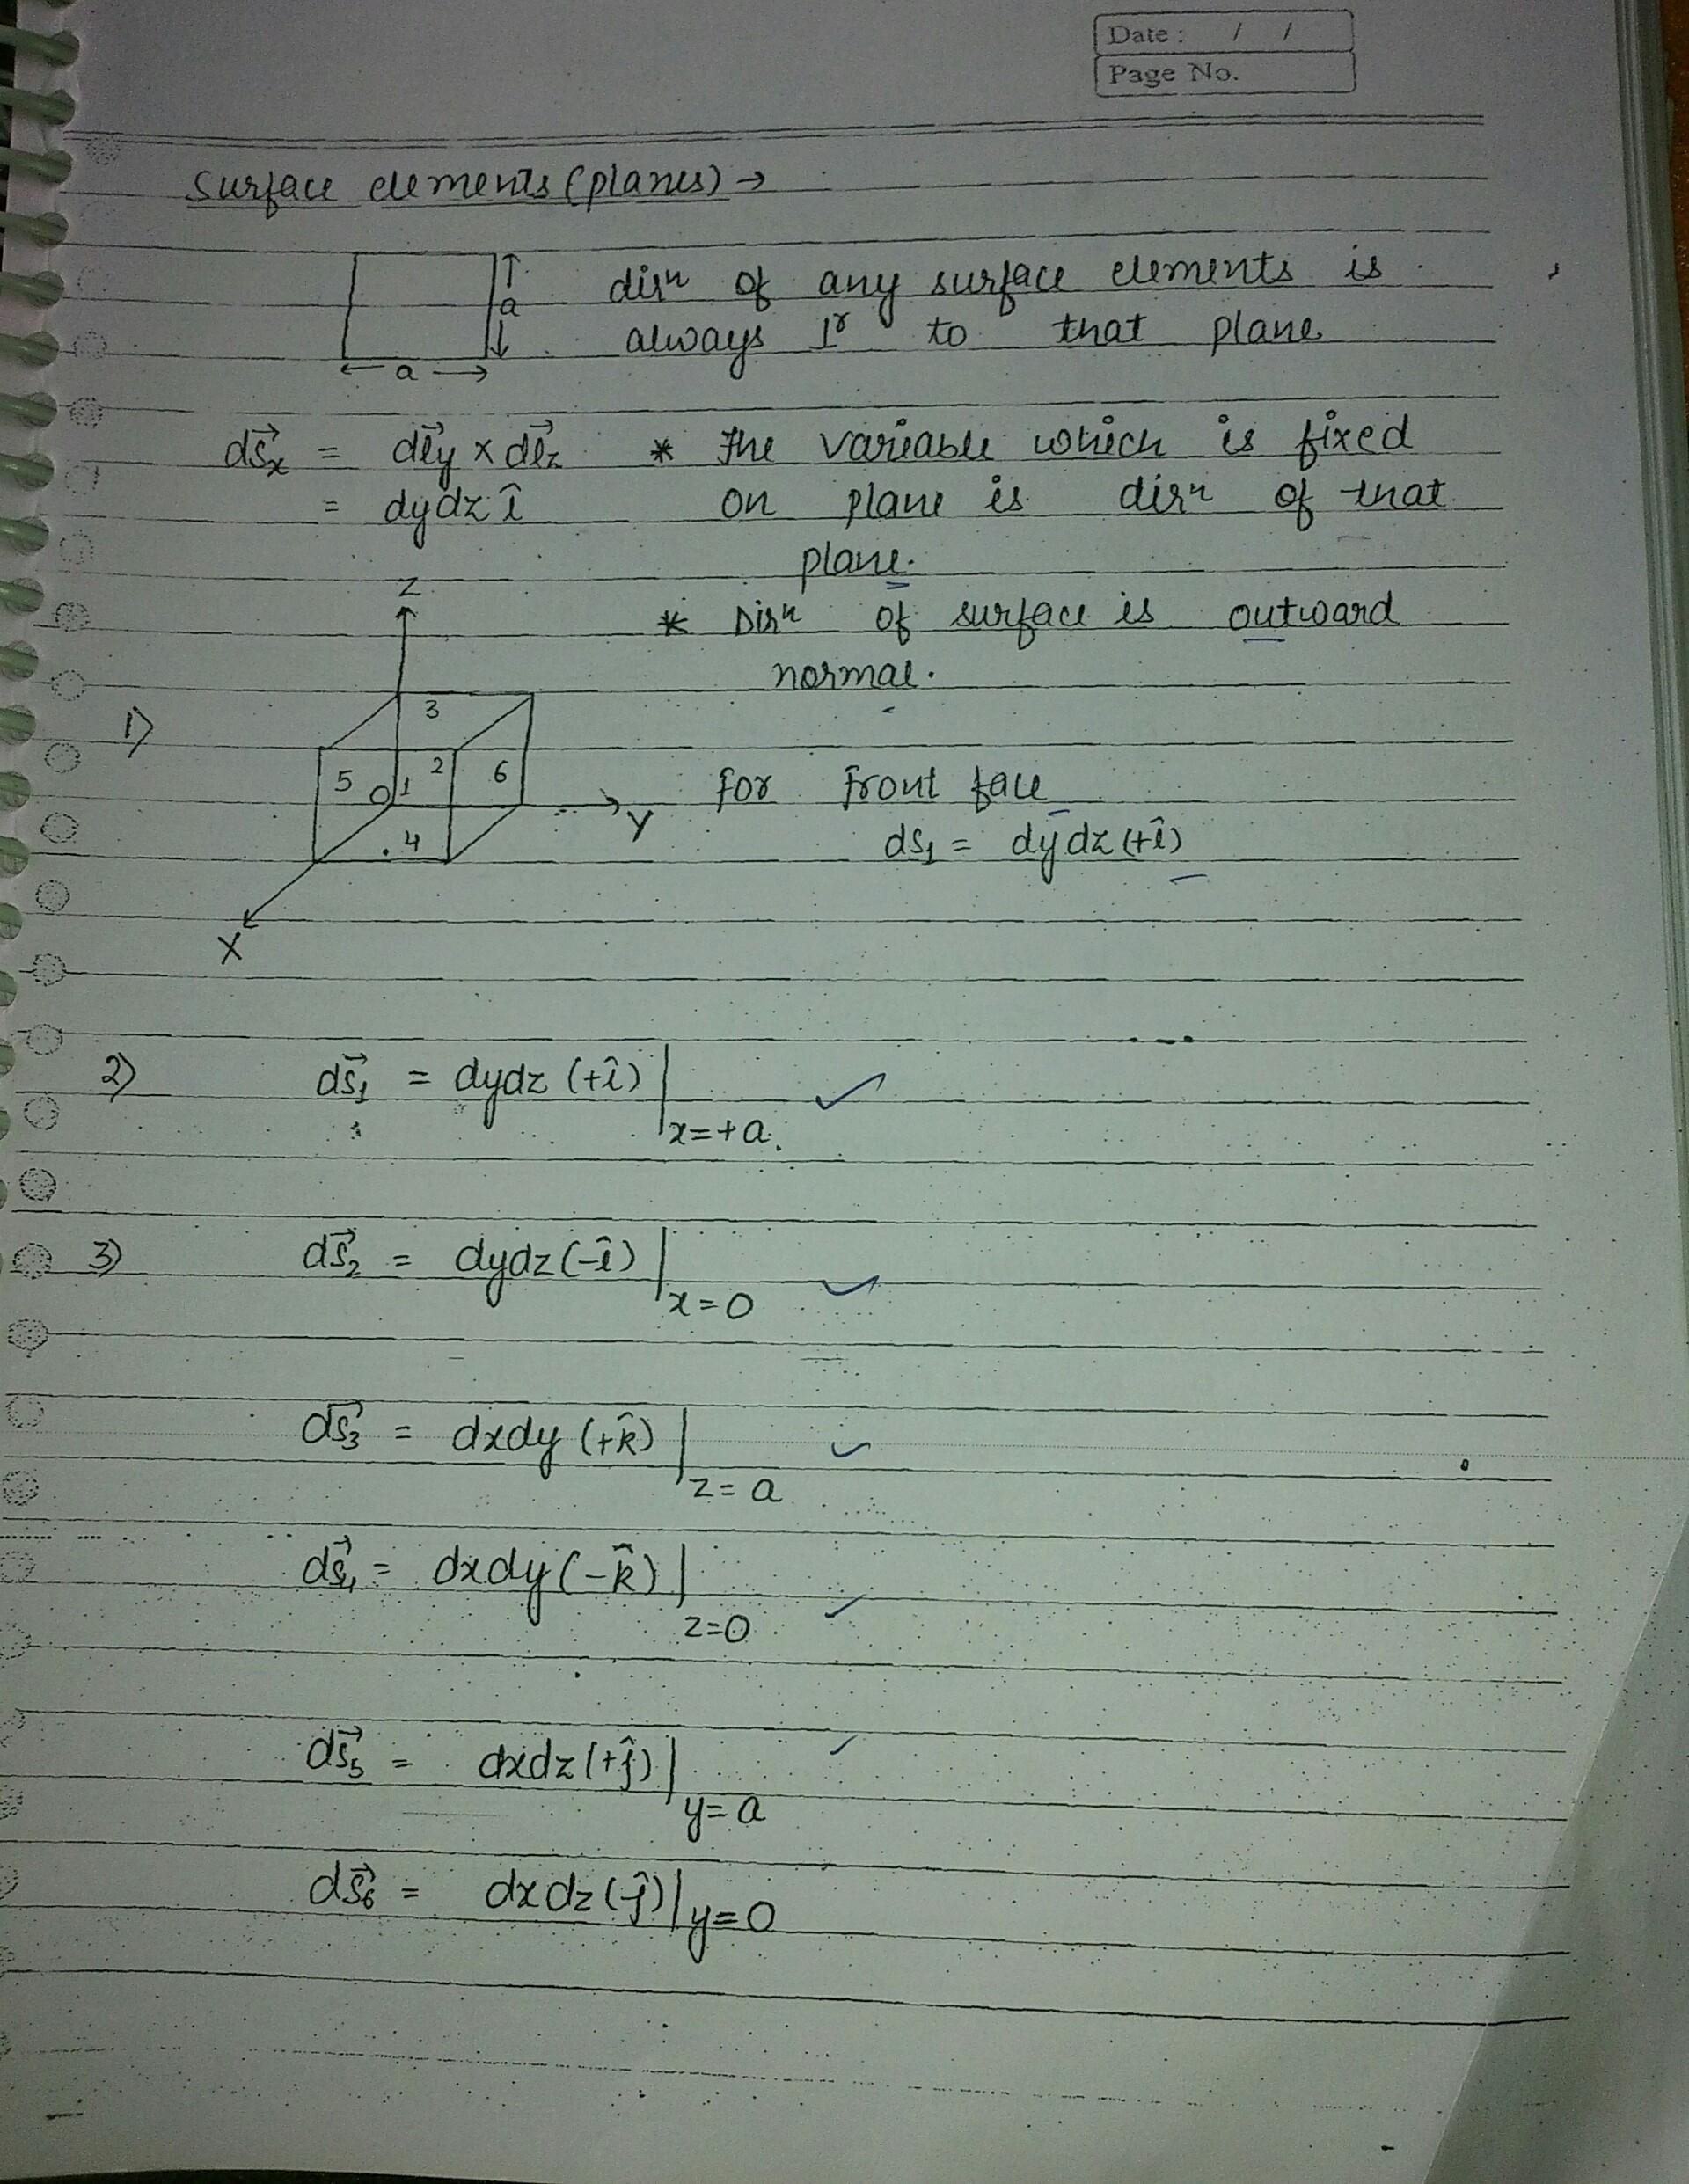 Date : / /
Page No.
Surface elements (planes) →
a
dirⁿ of any surface elements is
always ⊥ʳ to that plane
← a →
ds⃗ₓ = dl⃗y × dl⃗z * The variable which is fixed
= dydz î on plane is dirⁿ of that
plane.
Z
* Dirⁿ of surface is outward
normal.
1)
3
5 O 1 2 6
Y
4
X
For front face
ds₁ = dydz (+î)
2) ds⃗₁ = dydz (+î) |x=+a
3) ds⃗₂ = dydz (-î) |x=0
ds⃗₃ = dxdy (+k̂) |z=a
ds⃗₄ = dxdy (-k̂) |z=0
ds⃗₅ = dxdz (+ĵ) |y=a
ds⃗₆ = dxdz (-ĵ) |y=0